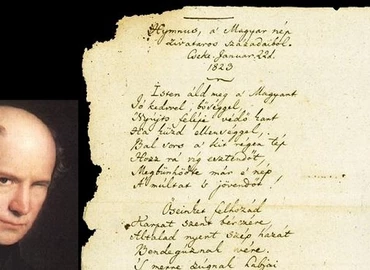 Hymnus, a Magyar nép
zivataros századaiból.
Cseke. Januar. 22d.
1823
Isten áld meg a Magyart
Jó kedvvel, bőséggel,
Nyújts feléje védő kart
Ha küzd ellenséggel,
Bal sors a kit régen tép
Hozz rá víg esztendőt,
Megbünhödte már e nép
A múltat s jövendőt!
Őseinket felhozád
Kárpát szent bérczére,
Általad nyert szép hazát
Bendegúznak vére
'S merre zúgnak habjai